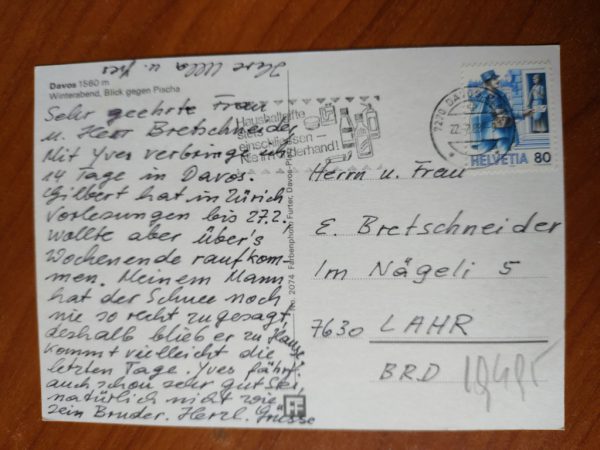 Davos 1560 m
Winterabend, Blick gegen Pischa
Sehr geehrte Frau
u. Herr Bretschneider
Mit Yves verbringe ich
14 Tage in Davos.
Gilbert hat in Zürich
Vorlesungen bis 27.2.
wollte aber über's
Wochenende raufkom-
men. Meinem Mann
hat der Schnee noch
nie so recht zugesagt,
deshalb blieb er zu Hause
kommt vielleicht die
letzten Tage. Yves fährt
auch schon sehr gut Ski,
natürlich nicht wie
sein Bruder. Herzl. Grüsse
Ihre Ulla u. Yves
No. 2074 Farbenphoto Furter, Davos-Platz
Haushaltgifte
stets
einschliessen –
nie in Kinderhand!
7270 DAVOS
HELVETIA 80
Herrn u. Frau
E. Bretschneider
Im Nägeli 5
7630 LAHR
BRD